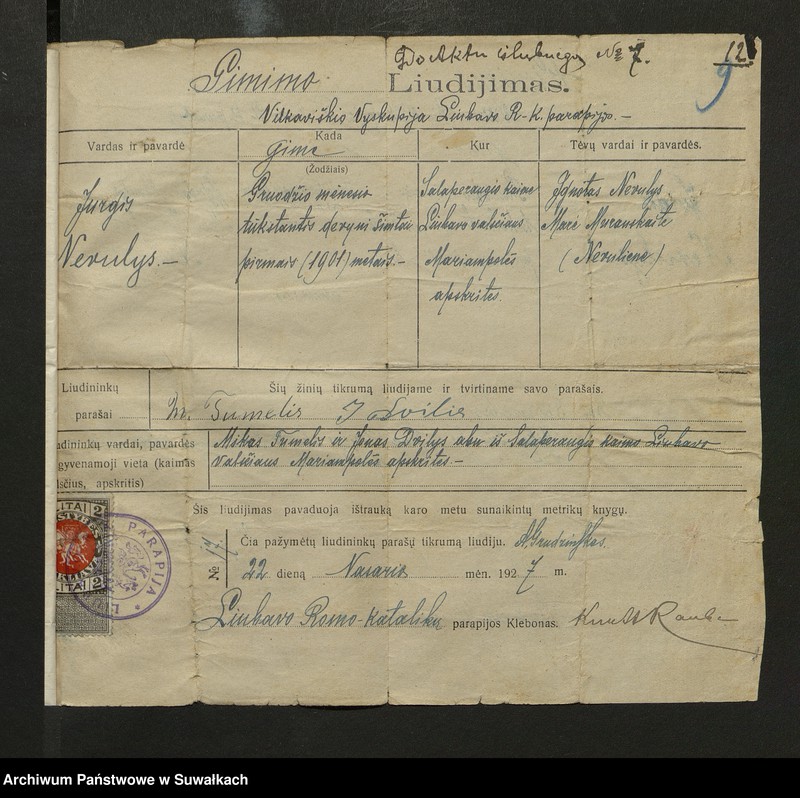 Do Aktu ślubnego № 7.
12
9
Gimimo Liudijimas.
Vilkaviškio Vyskupija Liubavo R-k. parapijos. –
Vardas ir pavardė
Kada
gimė
(Žodžiais)
Kur
Tėvų vardai ir pavardės.
Jurgis
Nevulys. –
Gruodžio mėnesio
tūkstantis devyni šimtai
pirmais (1901) metais. –
Salaperaugio kaime
Liubavo valsčiaus
Mariampolės
apskrities.
Ignotas Nevulys
Marė Muranskaitė
(Nevulienė)
Liudininkų
parašai
Šių žinių tikrumą liudijame ir tvirtiname savo parašais.
M. Tumelis J Dvilis
udininkų vardai, pavardės
gyvenamoji vieta (kaimas
lsčius, apskritis)
Mikas Tumelis ir Jonas Dvilys abu iš Salaperaugio kaimo Liubavo
valsčiaus Mariampolės apskrities. –
Šis liudijimas pavaduoja ištrauką karo metu sunaikintų metrikų knygų.
№ 17.
Čia pažymėtų liudininkų parašų tikrumą liudiju.
22 dieną Vasario mėn. 1927 m.
Liubavo Romo-Katalikų parapijos Klebonas.
LITAI 2
LITAI 2
PARAPIJA
Archiwum Państwowe w Suwałkach